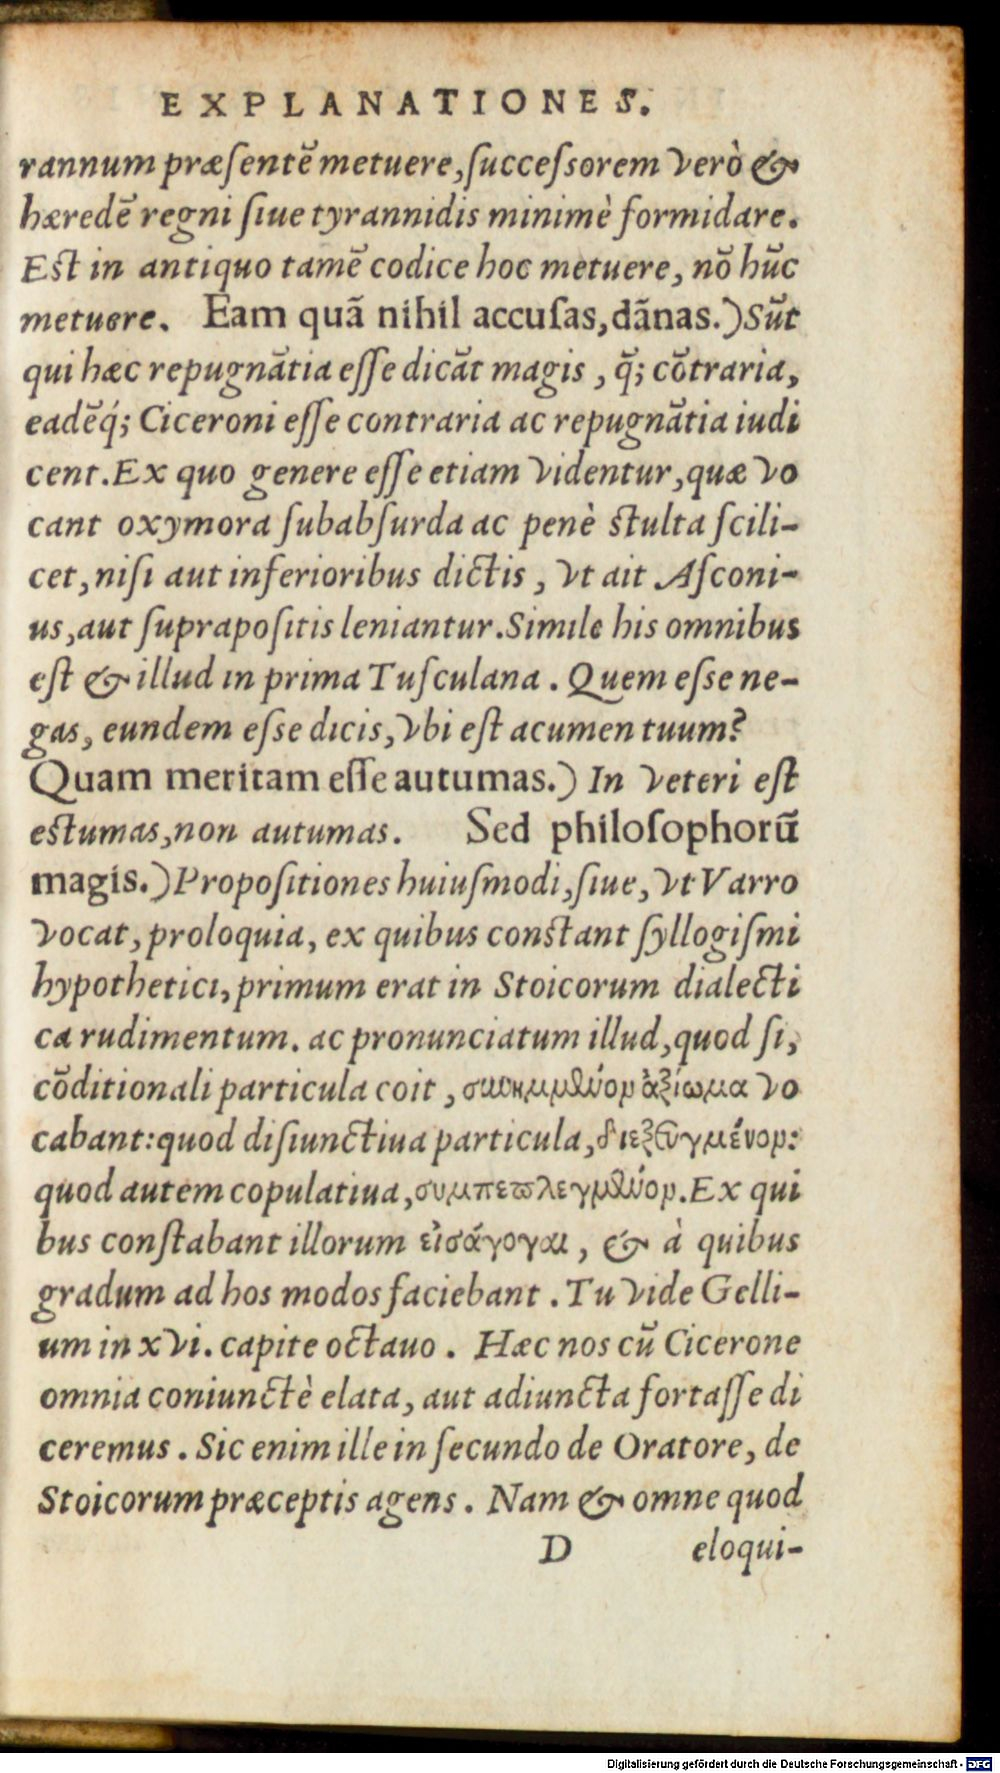 EXPLANATIONES.
rannum præſentē metuere, ſucceſsorem verò &
hæredē regni ſiue tyrannidis minimè formidare.
Eſt in antiquo tamē codice hoc metuere, nō hūc
metuere. Eam quā nihil accuſas, dānas.) Sūt
qui hæc repugnātia eſſe dicāt magis, q̄; cōtraria,
eadēq́; Ciceroni eſſe contraria ac repugnātia iudi
cent. Ex quo genere eſſe etiam videntur, quæ vo
cant oxymora ſubabſurda ac penè ſtulta ſcili-
cet, niſi aut inferioribus dictis, vt ait Aſconi-
us, aut ſuprapoſitis leniantur. Simile his omnibus
eſt & illud in prima Tuſculana. Quem eſse ne-
gas, eundem eſse dicis, vbi eſt acumen tuum?
Quam meritam eſſe autumas.) In veteri eſt
eſtumas, non autumas. Sed philoſophorū
magis.) Propoſitiones huiuſmodi, ſiue, vt Varro
vocat, proloquia, ex quibus conſtant ſyllogiſmi
hypothetici, primum erat in Stoicorum dialecti
ca rudimentum. ac pronunciatum illud, quod ſi,
cōditionali particula coit, συνημμένον ἀξίωμα vo
cabant: quod diſiunctiua particula, διεζευγμένον:
quod autem copulatiua, συμπεπλεγμένον. Ex qui
bus conſtabant illorum εἰσάγογαι, & à quibus
gradum ad hos modos faciebant. Tu vide Gelli-
um in xvi. capite octauo. Hæc nos cū Cicerone
omnia coniunctè elata, aut adiuncta fortaſſe di
ceremus. Sic enim ille in ſecundo de Oratore, de
Stoicorum præceptis agens. Nam & omne quod
D eloqui-
Digitalisierung gefördert durch die Deutsche Forschungsgemeinschaft - DFG